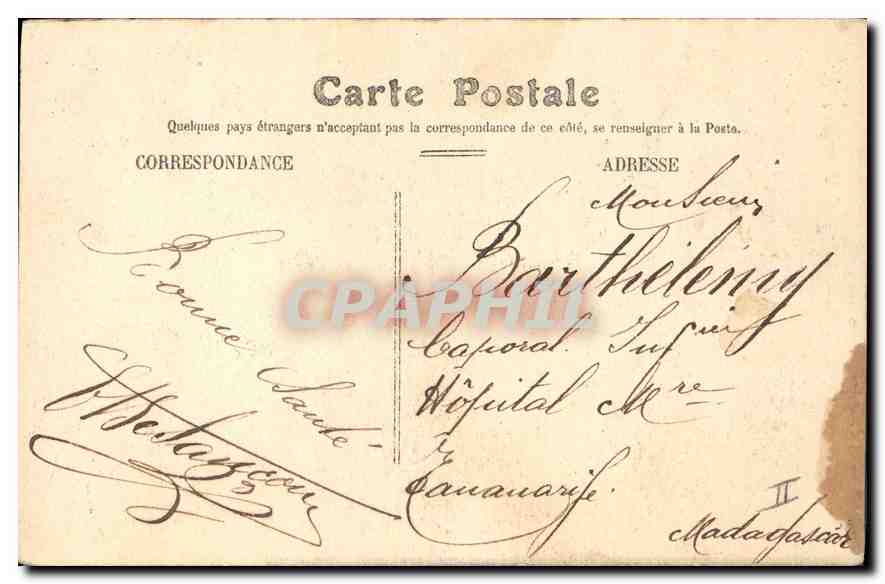 Carte Postale
Quelques pays étrangers n'acceptent pas la correspondance de ce côté, se renseigner à la Poste.
CORRESPONDANCE
ADRESSE
Bonne
Santé
Monsieur
Barthélémy
Caporal Inf ier
Hôpital Mre
Tananarife.
Madagascar
II
CPAPHIL